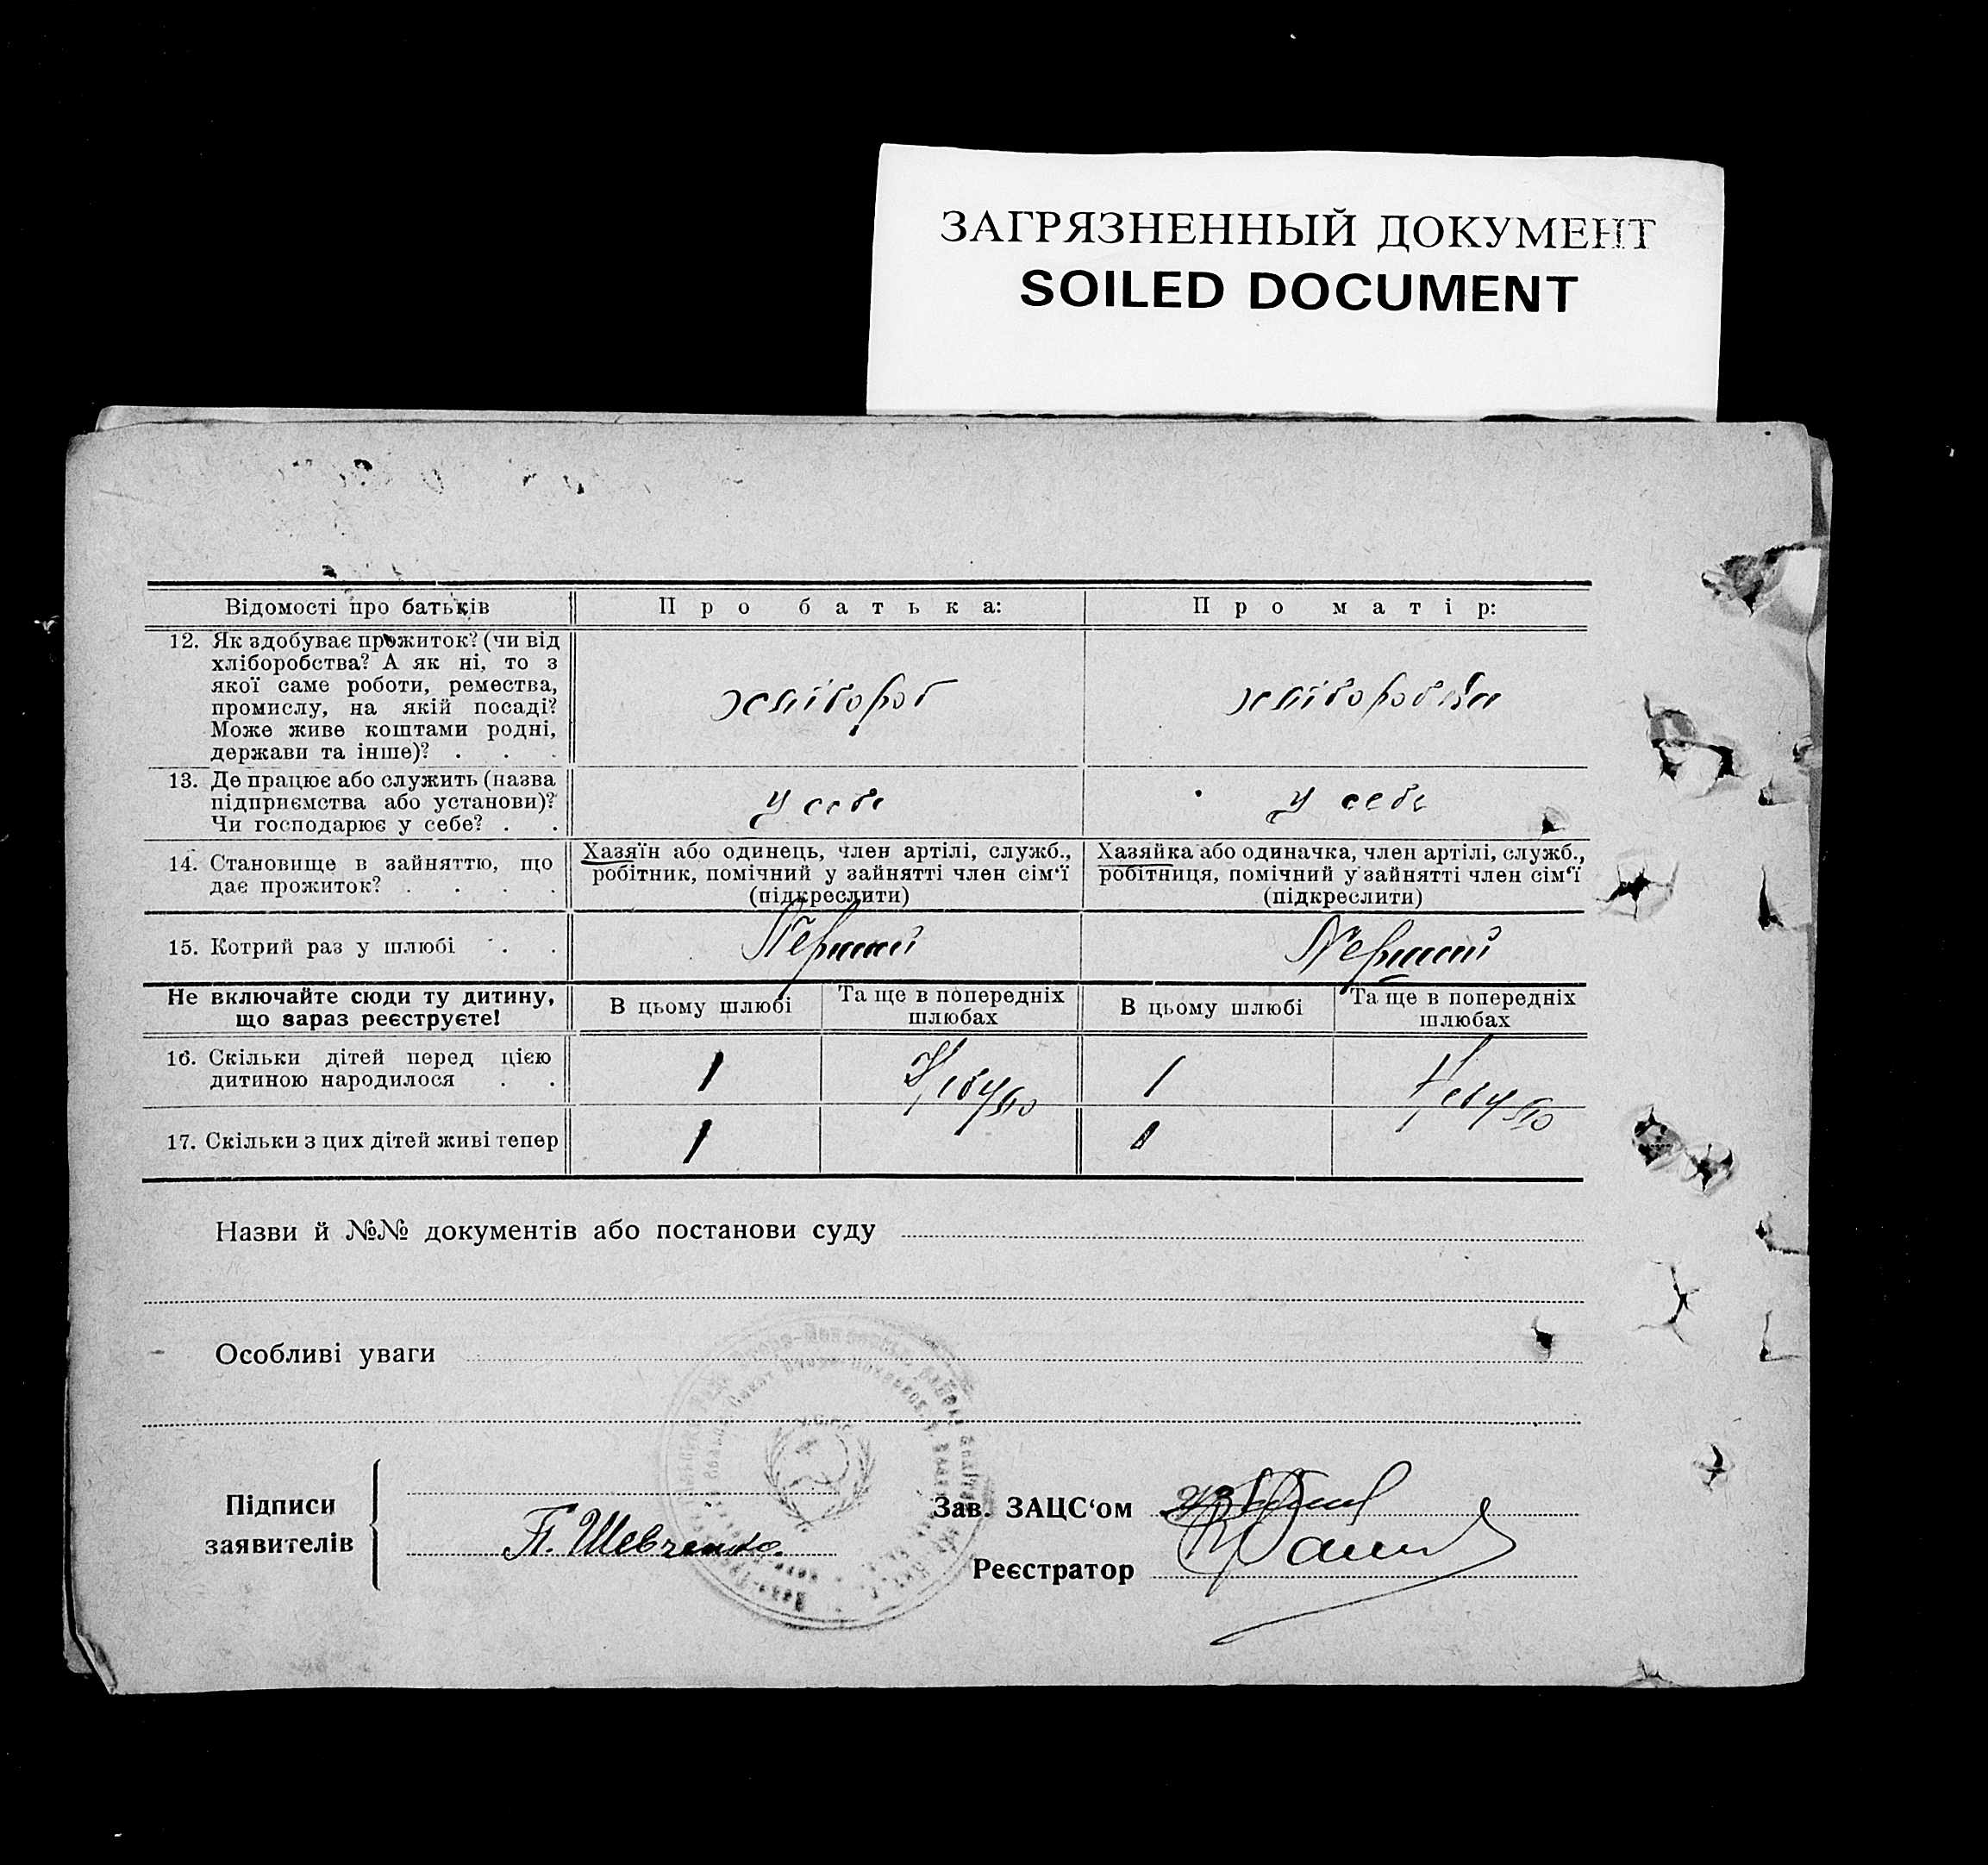 ЗАГРЯЗНЕННЫЙ ДОКУМЕНТ
SOILED DOCUMENT
Відомості про батьків
Про батька:
Про матір:
12. Як здобуває прожиток? (чи від
хліборобства? А як ні, то з
якої саме роботи, ремества,
промислу, на якій посаді?
Може живе коштами родні,
держави та інше)? . . .
хлібороб
хліборобка
13. Де працює або служить (назва
підприємства або установи)?
Чи господарює у себе? . .
у себе
у себе
14. Становище в зайняттю, що
дає прожиток? . . . .
Хазяїн або одинець, член артілі, служб.,
робітник, помічний у зайнятті член сім‘ї
(підкреслити)
Хазяйка або одиначка, член артілі, служб.,
робітниця, помічний у зайнятті член сім‘ї
(підкреслити)
15. Котрий раз у шлюбі . .
Перший
Перший
Не включайте сюди ту дитину,
що зараз реєструєте!
В цьому шлюбі
Та ще в попередніх
шлюбах
В цьому шлюбі
Та ще в попередніх
шлюбах
16. Скільки дітей перед цією
дитиною народилося . .
1
Не було
1
Не було
17. Скільки з цих дітей живі тепер
1
1
Назви й №№ документів або постанови суду
Особливі уваги
Підписи
заявителів
П. Шевченко.
Зав. ЗАЦС‘ом
Реєстратор